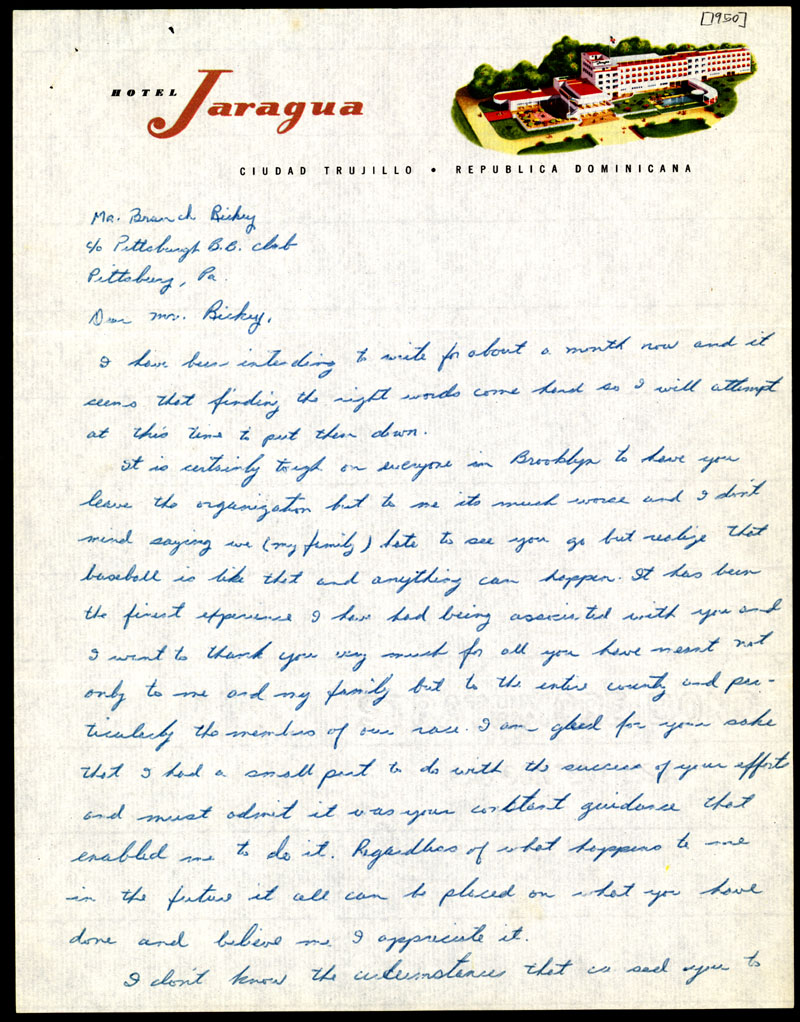 [1950]
HOTEL Jaragua
CIUDAD TRUJILLO • REPUBLICA DOMINICANA
Mr. Branch Rickey
c/o Pittsburgh B.B. club
Pittsburg, Pa.
Dear Mr. Rickey,
I have been intending to write for about a month now and it
seems that finding the right words come hard so I will attempt
at this time to put them down.
It is certainly tough on everyone in Brooklyn to have you
leave the organization but to me its much worse and I don't
mind saying we (my family) hate to see you go but realize that
baseball is like that and anything can happen. It has been
the finest experience I have had being associated with you and
I want to thank you very much for all you have meant not
only to me and my family but to the entire country and par-
ticularly the members of our race. I am glad for your sake
that I had a small part to do with the success of your efforts
and must admit it was your constant guidance that
enabled me to do it. Regardless of what happens to me
in the future it all can be placed on what you have
done and believe me I appreciate it.
I don't know the circumstances that caused you to